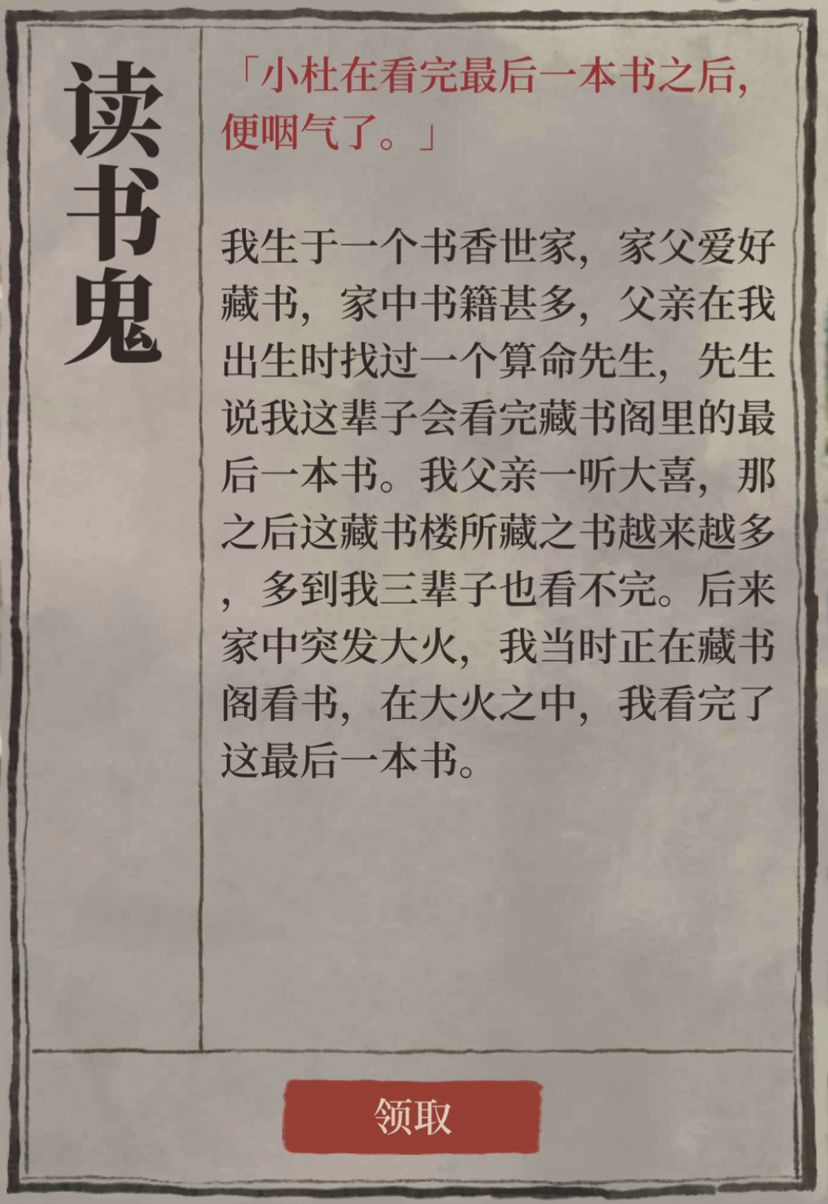 读书鬼
「小杜在看完最后一本书之后，
便咽气了。」
我生于一个书香世家，家父爱好
藏书，家中书籍甚多，父亲在我
出生时找过一个算命先生，先生
说我这辈子会看完藏书阁里的最
后一本书。我父亲一听大喜，那
之后这藏书楼所藏之书越来越多
，多到我三辈子也看不完。后来
家中突发大火，我当时正在藏书
阁看书，在大火之中，我看完了
这最后一本书。
领取